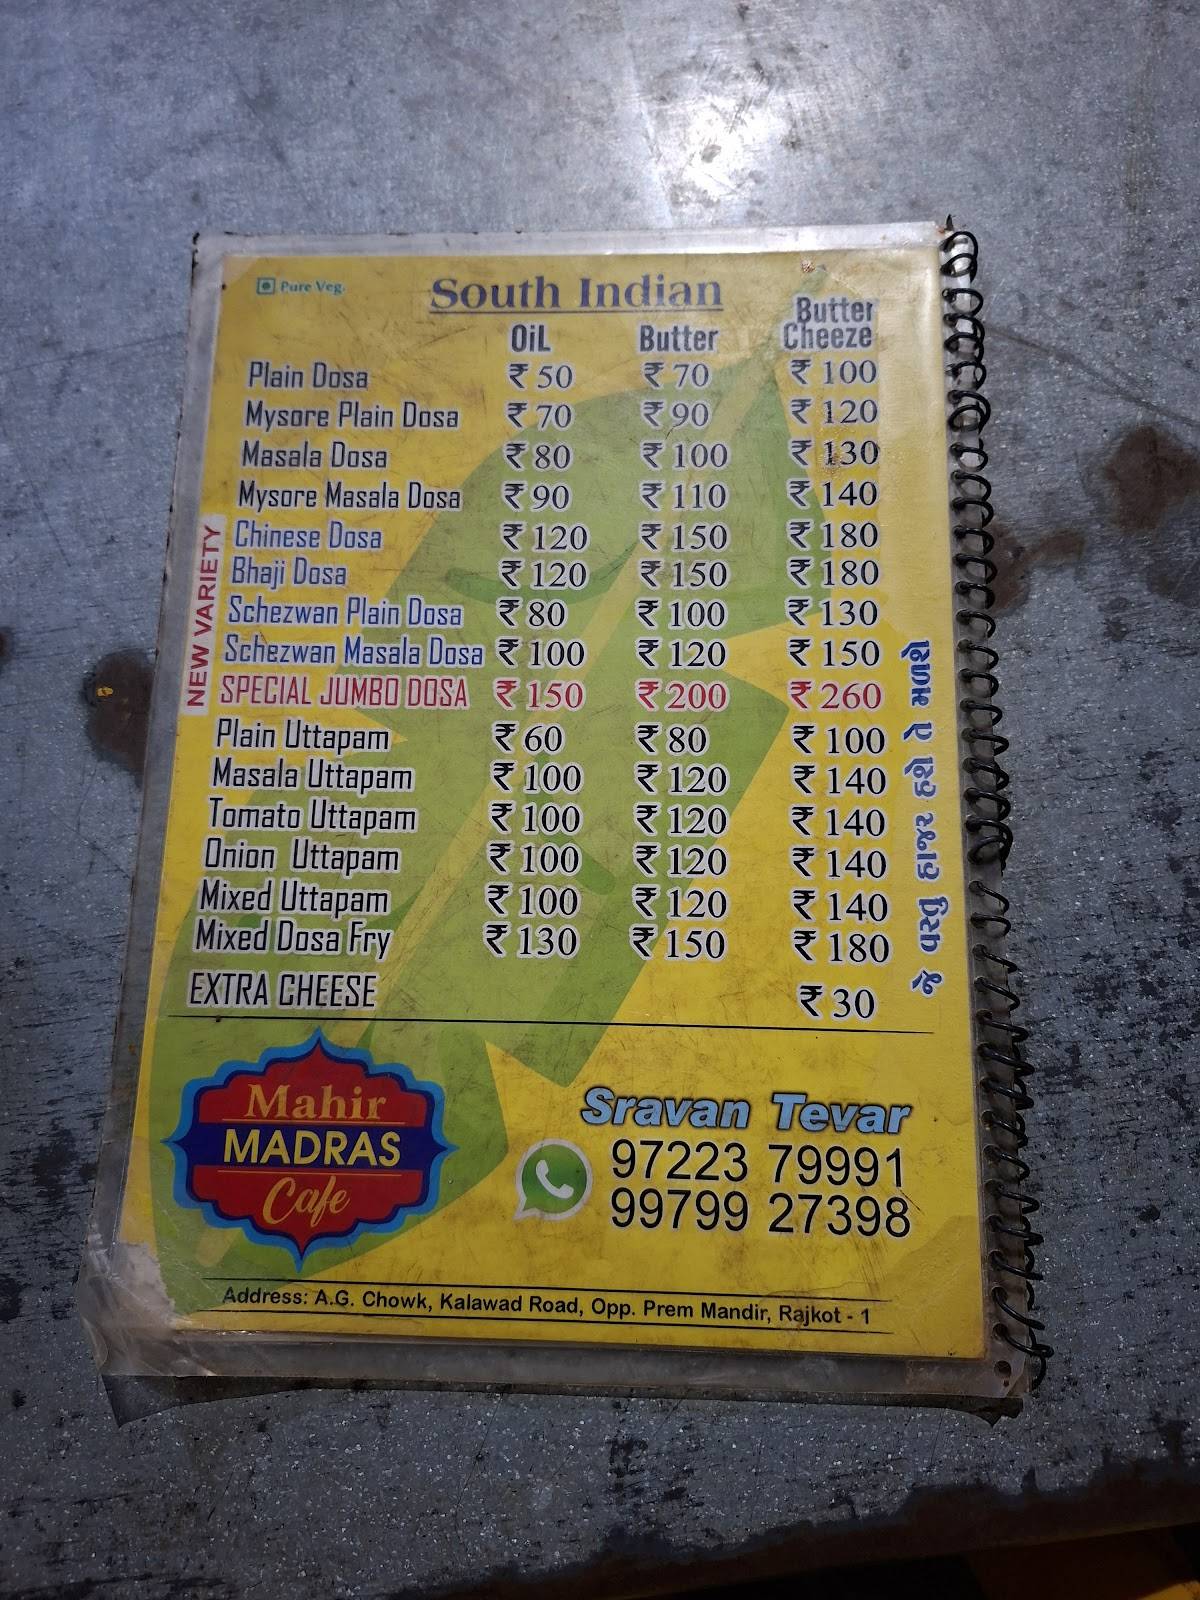 Pure Veg.
South Indian
OiL Butter Butter Cheeze
Plain Dosa ₹ 50 ₹ 70 ₹ 100
Mysore Plain Dosa ₹ 70 ₹ 90 ₹ 120
Masala Dosa ₹ 80 ₹ 100 ₹ 130
Mysore Masala Dosa ₹ 90 ₹ 110 ₹ 140
NEW VARIETY
Chinese Dosa ₹ 120 ₹ 150 ₹ 180
Bhaji Dosa ₹ 120 ₹ 150 ₹ 180
Schezwan Plain Dosa ₹ 80 ₹ 100 ₹ 130
Schezwan Masala Dosa ₹ 100 ₹ 120 ₹ 150
SPECIAL JUMBO DOSA ₹ 150 ₹ 200 ₹ 260
Plain Uttapam ₹ 60 ₹ 80 ₹ 100
Masala Uttapam ₹ 100 ₹ 120 ₹ 140
Tomato Uttapam ₹ 100 ₹ 120 ₹ 140
Onion Uttapam ₹ 100 ₹ 120 ₹ 140
Mixed Uttapam ₹ 100 ₹ 120 ₹ 140
Mixed Dosa Fry ₹ 130 ₹ 150 ₹ 180
EXTRA CHEESE ₹ 30
જે વસ્તુ હાજર હશે તે મળશે
Mahir
MADRAS
Cafe
Sravan Tevar
97223 79991
99799 27398
Address: A.G. Chowk, Kalawad Road, Opp. Prem Mandir, Rajkot - 1